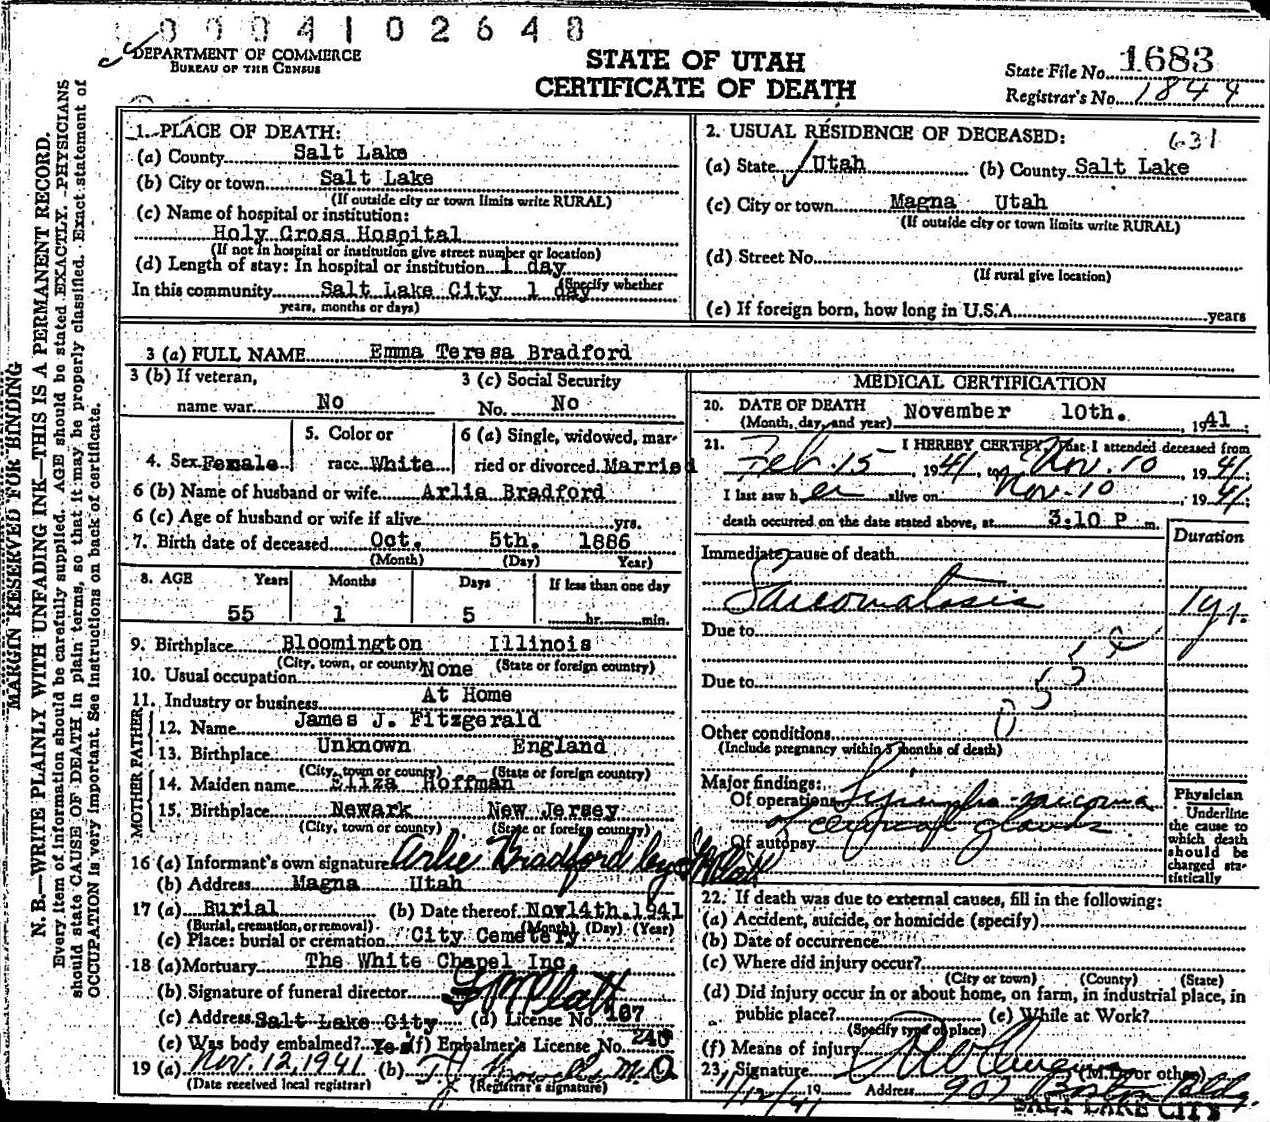 0004102648
DEPARTMENT OF COMMERCE
BUREAU OF THE CENSUS
STATE OF UTAH
CERTIFICATE OF DEATH
State File No. 1683
Registrar's No. 1844
MARGIN RESERVED FOR BINDING
N. B.—WRITE PLAINLY WITH UNFADING INK—THIS IS A PERMANENT RECORD.
Every item of information should be carefully supplied. AGE should be stated EXACTLY. PHYSICIANS
should state CAUSE OF DEATH in plain terms, so that it may be properly classified. Exact statement of
OCCUPATION is very important. See instructions on back of certificate.
1. PLACE OF DEATH:
(a) County Salt Lake
(b) City or town Salt Lake
(If outside city or town limits write RURAL)
(c) Name of hospital or institution:
Holy Cross Hospital
(If not in hospital or institution give street number or location)
(d) Length of stay: In hospital or institution 1 day
In this community Salt Lake City 1 day (Specify whether
years, months or days)
2. USUAL RESIDENCE OF DECEASED: 631
(a) State Utah (b) County Salt Lake
(c) City or town Magna Utah
(If outside city or town limits write RURAL)
(d) Street No.
(If rural give location)
(e) If foreign born, how long in U.S.A. years
3 (a) FULL NAME Emma Teresa Bradford
3 (b) If veteran, 3 (c) Social Security
name war No No. No
4. Sex Female 5. Color or race White 6 (a) Single, widowed, married or divorced Married
6 (b) Name of husband or wife Arlie Bradford
6 (c) Age of husband or wife if alive yrs.
7. Birth date of deceased Oct. 5th. 1886
(Month) (Day) Year)
8. AGE Years Months Days If less than one day
55 1 5 hr. min.
9. Birthplace Bloomington Illinois
(City, town, or county) (State or foreign country)
10. Usual occupation None
11. Industry or business At Home
FATHER
12. Name James J. Fitzgerald
13. Birthplace Unknown England
(City, town or county) (State or foreign country)
MOTHER
14. Maiden name Eliza Hoffman
15. Birthplace Newark New Jersey
(City, town or county) (State or foreign country)
16 (a) Informant's own signature Arlie Bradford by Platt
(b) Address Magna Utah
17 (a) Burial (b) Date thereof Nov 14th. 1941
(Burial, cremation, or removal) (Month) (Day) (Year)
(c) Place: burial or cremation City Cemetery
18 (a) Mortuary The White Chapel Inc.
(b) Signature of funeral director Platt
(c) Address Salt Lake City (d) License No. 167
(e) Was body embalmed? Yes (f) Embalmer's License No. 240
19 (a) Nov. 12, 1941 (b) M.D.
(Date received local registrar) (Registrar's signature)
MEDICAL CERTIFICATION
20. DATE OF DEATH November 10th. , 1941
(Month, day, and year)
21. I HEREBY CERTIFY, that I attended deceased from
Feb 15 1941, to Nov. 10 , 1941;
I last saw her alive on Nov-10 , 1941;
death occurred on the date stated above, at 3:10 P m.
Duration
Immediate cause of death
Sarcomatosis 1 yr.
Due to
Due to
055e
Other conditions
(Include pregnancy within 3 months of death)
Major findings:
Of operations Lympho-sarcoma
of cervical glands
Of autopsy
Physician
Underline
the cause to
which death
should be
charged sta-
tistically
22. If death was due to external causes, fill in the following:
(a) Accident, suicide, or homicide (specify)
(b) Date of occurrence
(c) Where did injury occur?
(City or town) (County) (State)
(d) Did injury occur in or about home, on farm, in industrial place, in
public place? (e) While at Work?
(Specify type of place)
(f) Means of injury
23. Signature (M.D. or other)
11/12/41 19 Address 907 Boston Bldg.
SALT LAKE CITY